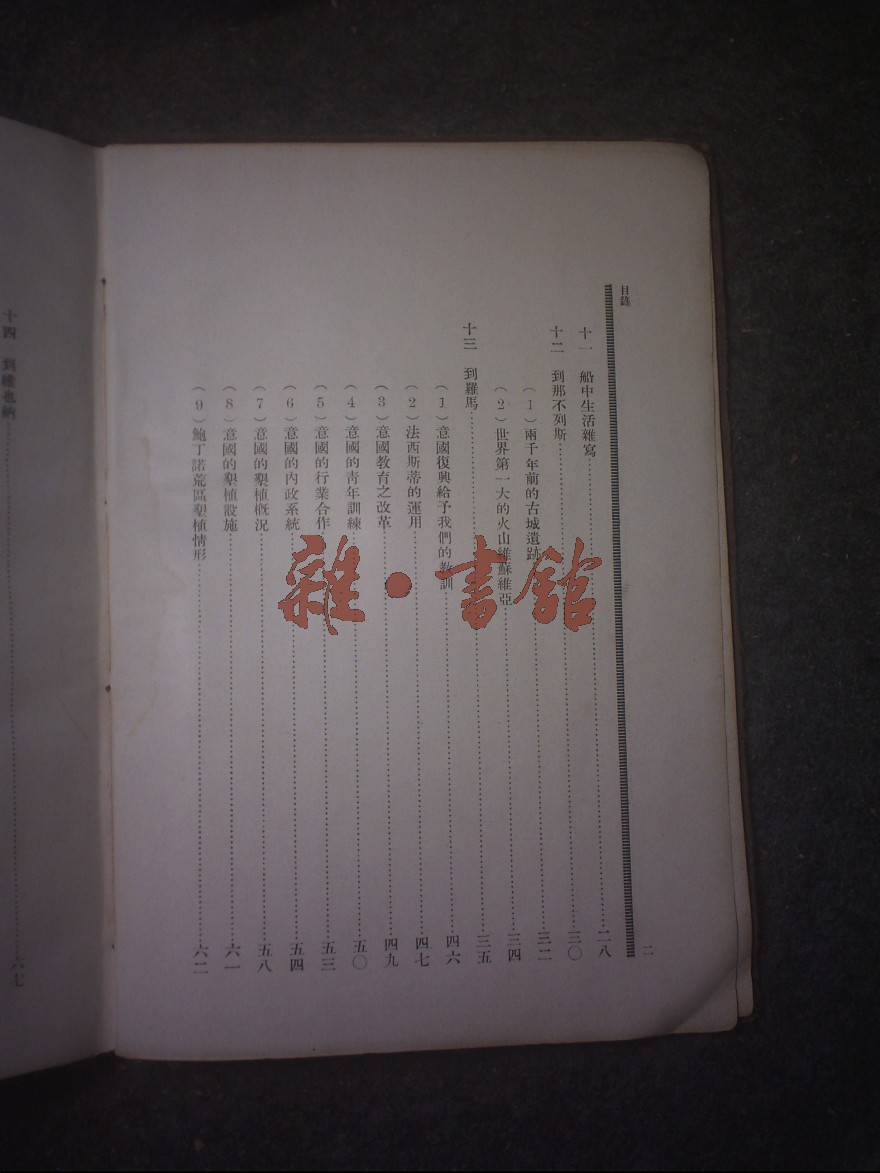 目錄
二
十一 船中生活雜寫 二八
十二 到那不列斯 三〇
(1)兩千年前的古城遺跡 三二
(2)世界第一大的火山維蘇維亞 三四
十三 到羅馬 三五
(1)意國復興給予我們的教訓 四六
(2)法西斯蒂的運用 四七
(3)意國教育之改革 四九
(4)意國的靑年訓練 五〇
(5)意國的行業合作 五三
(6)意國的內政系統 五四
(7)意國的墾植概況 五八
(8)意國的墾植設施 六一
(9)鮑丁諾荒區墾植情形 六二
十四 到維也納 六七
雜·書館